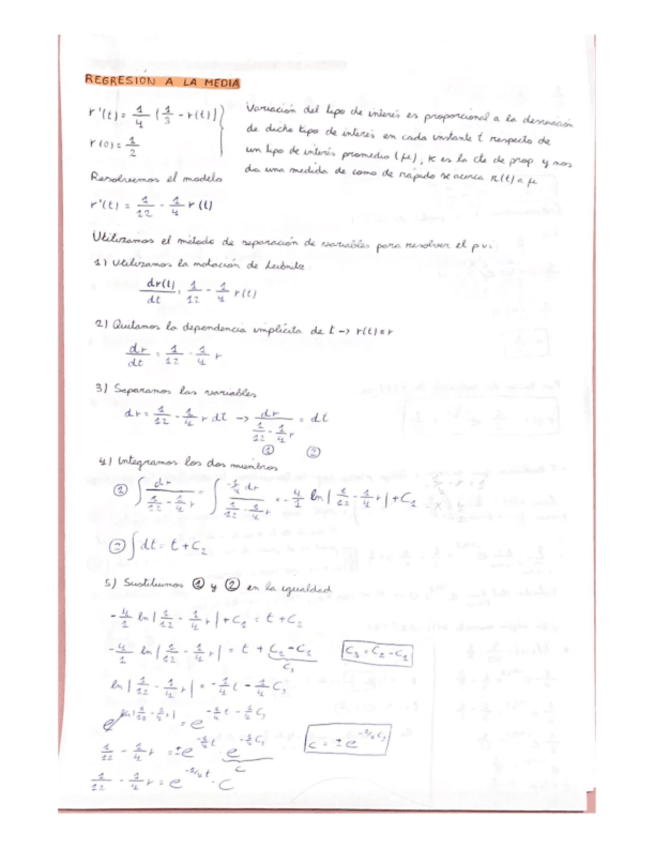 REGRESIÓN A LA MEDIA
r'(t) = 1/4 (1/3 - r(t)) }
r(0) = 1/2
Variación del tipo de interés es proporcional a la desviación
de dicho tipo de interés en cada instante t respecto de
un tipo de interés promedio (μ), K es la cte de prop y nos
da una medida de como de rápido se acerca r(t) a μ
Resolvemos el modelo
r'(t) = 1/12 - 1/4 r(t)
Utilizamos el método de separación de variables para resolver el p.v.i
1) Utilizamos la notación de Leibnitz
dr(t)/dt = 1/12 - 1/4 r(t)
2) Quitamos la dependencia implícita de t -> r(t) = r
dr/dt = 1/12 - 1/4 r
3) Separamos las variables
dr = 1/12 - 1/4 r dt -> dr/(1/12 - 1/4 r) = dt
① ②
4) Integramos los dos miembros
① ∫ dr/(1/12 - 1/4 r) = ∫ -1/4 dr/(1/12 - 1/4 r) = -4/1 ln|1/12 - 1/4 r| + C1
② ∫ dt = t + C2
5) Sustituimos ① y ② en la igualdad
-4/1 ln|1/12 - 1/4 r| + C1 = t + C2
-4/1 ln|1/12 - 1/4 r| = t + C2 - C1 C3 = C2 - C1
C3
ln|1/12 - 1/4 r| = -1/4 t - 1/4 C3
e^(ln|1/12 - 1/4 r|) = e^(-1/4 t - 1/4 C3)
1/12 - 1/4 r = ± e^(-1/4 t) · e^(-1/4 C3) C = ± e^(-1/4 C3)
C
1/12 - 1/4 r = e^(-1/4 t) · C